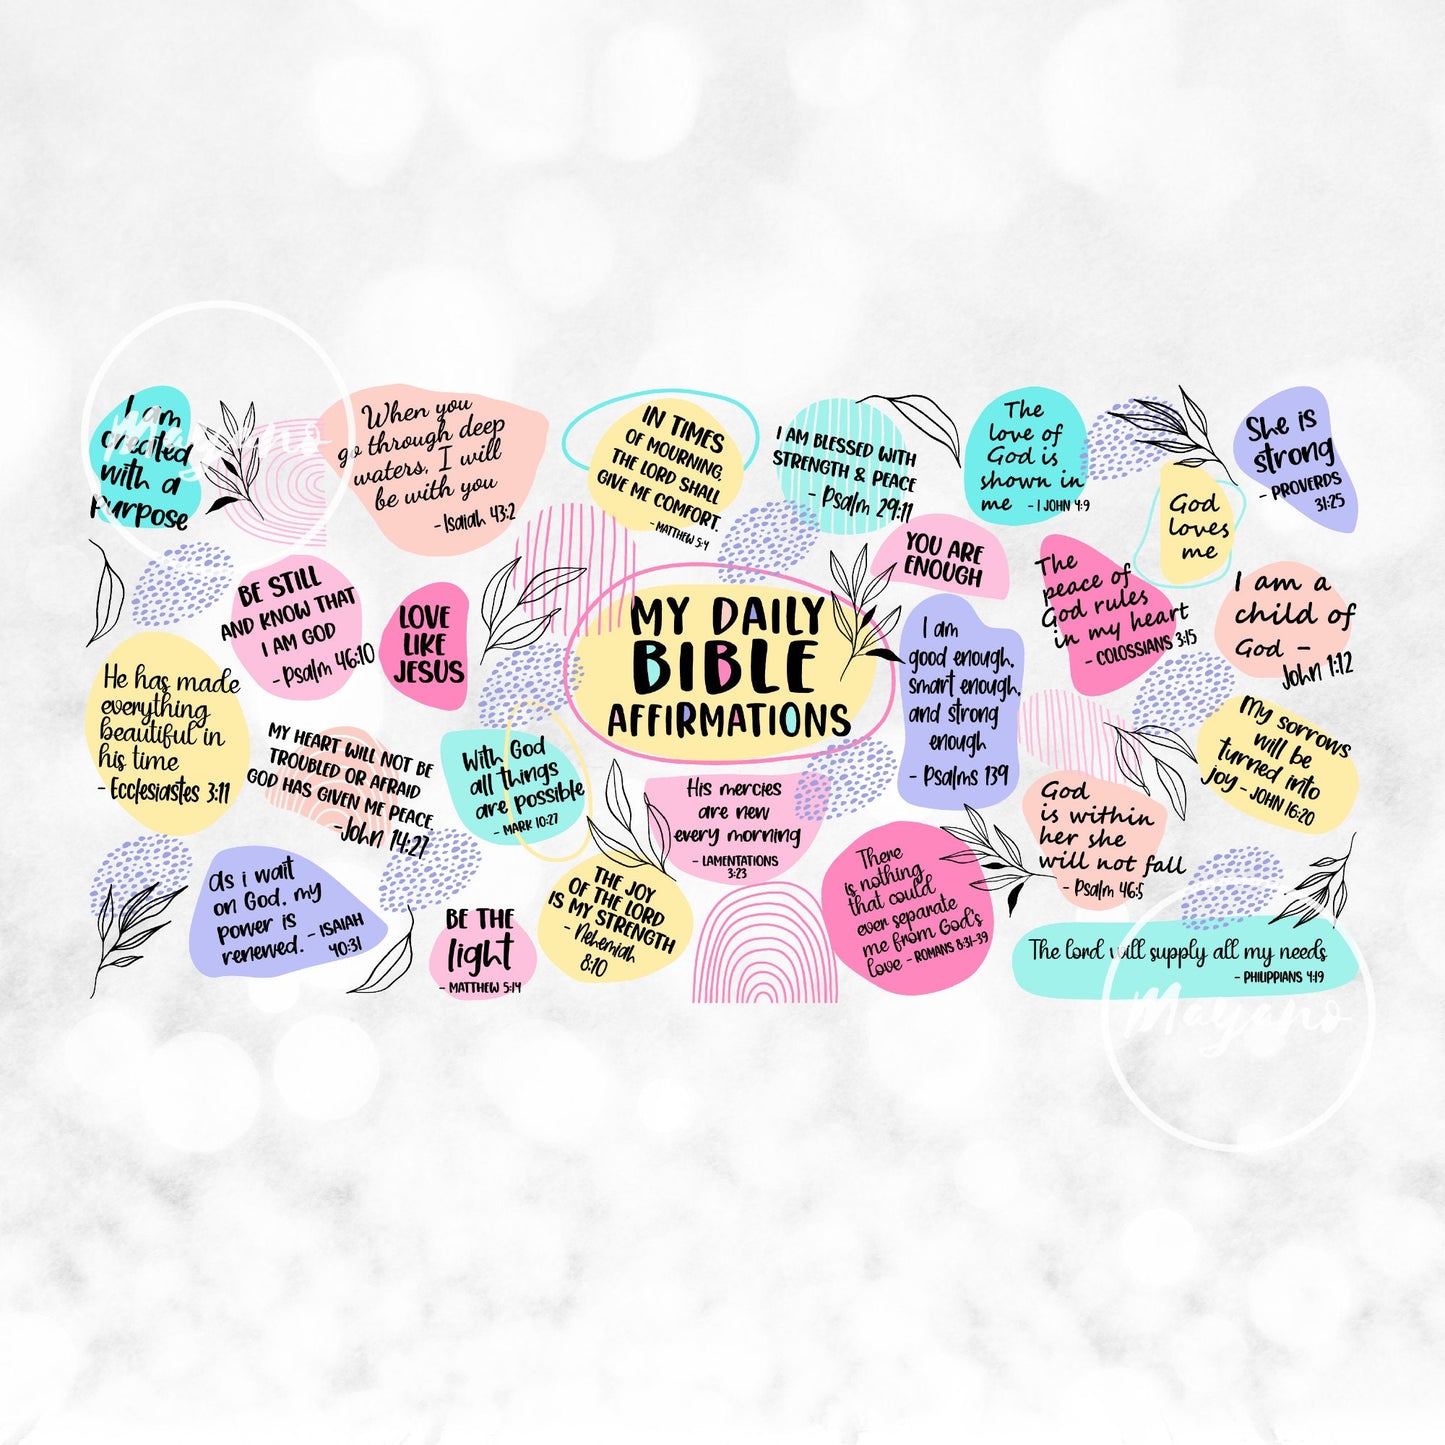 I am
created
with a
purpose
Mayano
When you
go through deep
waters, I will
be with you
- Isaiah 43:2
IN TIMES
OF MOURNING,
THE LORD SHALL
GIVE ME COMFORT.
- MATTHEW 5:4
I AM BLESSED WITH
STRENGTH & PEACE
- Psalm 29:11
The
love of
God is
shown in
me - I JOHN 4:9
God
loves
me
She is
strong
- PROVERBS
31:25
BE STILL
AND KNOW THAT
I AM GOD
- Psalm 46:10
LOVE
LIKE
JESUS
MY DAILY
BIBLE
AFFIRMATIONS
YOU ARE
ENOUGH
I am
good enough,
smart enough,
and strong
enough
- Psalms 139
The
peace of
God rules
in my heart
- COLOSSIANS 3:15
I am a
child of
God -
John 1:12
He has made
everything
beautiful in
his time
- Ecclesiastes 3:11
MY HEART WILL NOT BE
TROUBLED OR AFRAID
GOD HAS GIVEN ME PEACE
-John 14:27
With God
all things
are possible
- MARK 10:27
His mercies
are new
every morning
- LAMENTATIONS
3:23
God
is within
her she
will not fall
- Psalm 46:5
My sorrows
will be
turned into
joy - JOHN 16:20
as i wait
on God, my
power is
renewed. - ISAIAH
40:31
BE THE
light
- MATTHEW 5:14
THE JOY
OF THE LORD
IS MY STRENGTH
- Nehemiah
8:10
There
is nothing
that could
ever separate
me from God's
love - ROMANS 8:31-39
The lord will supply all my needs
- PHILIPPIANS 4:19
Mayano